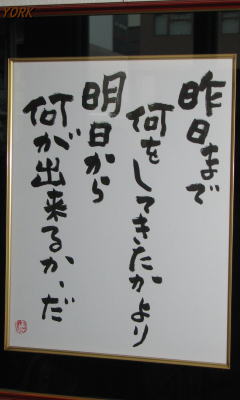 YORK
昨日まで
何をしてきたかより
明日から
何が出来るか、だ